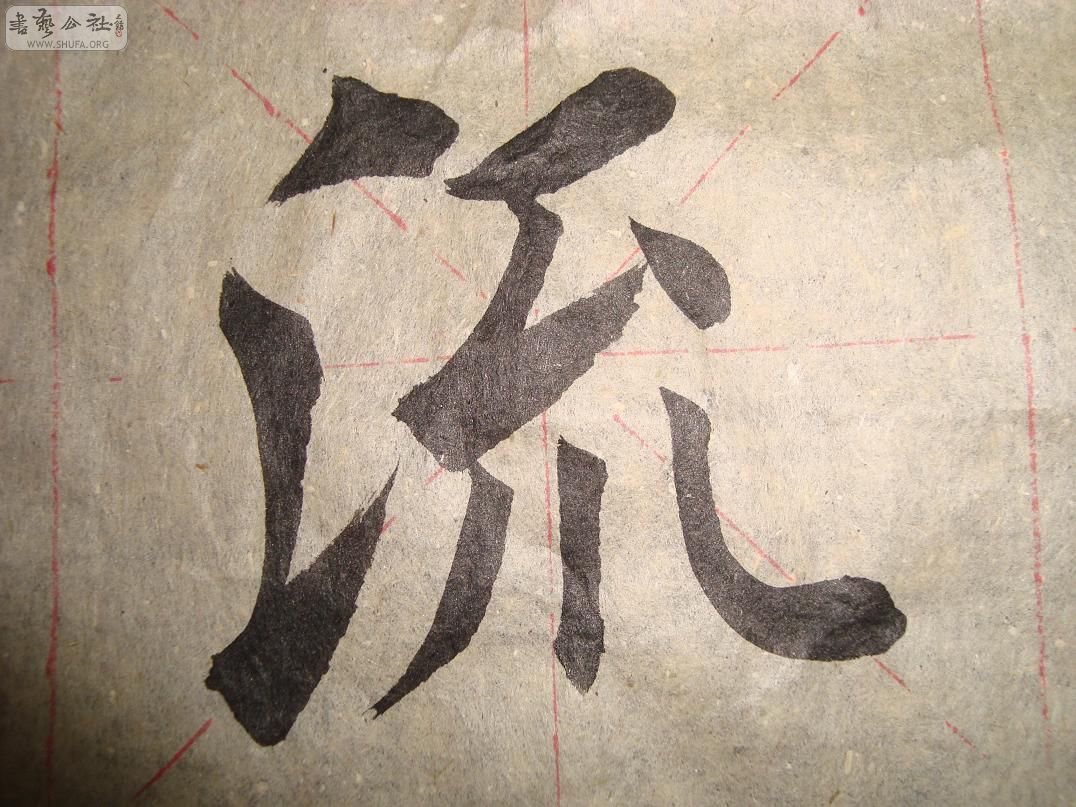 書藝公社
WWW.SHUFA.ORG
流